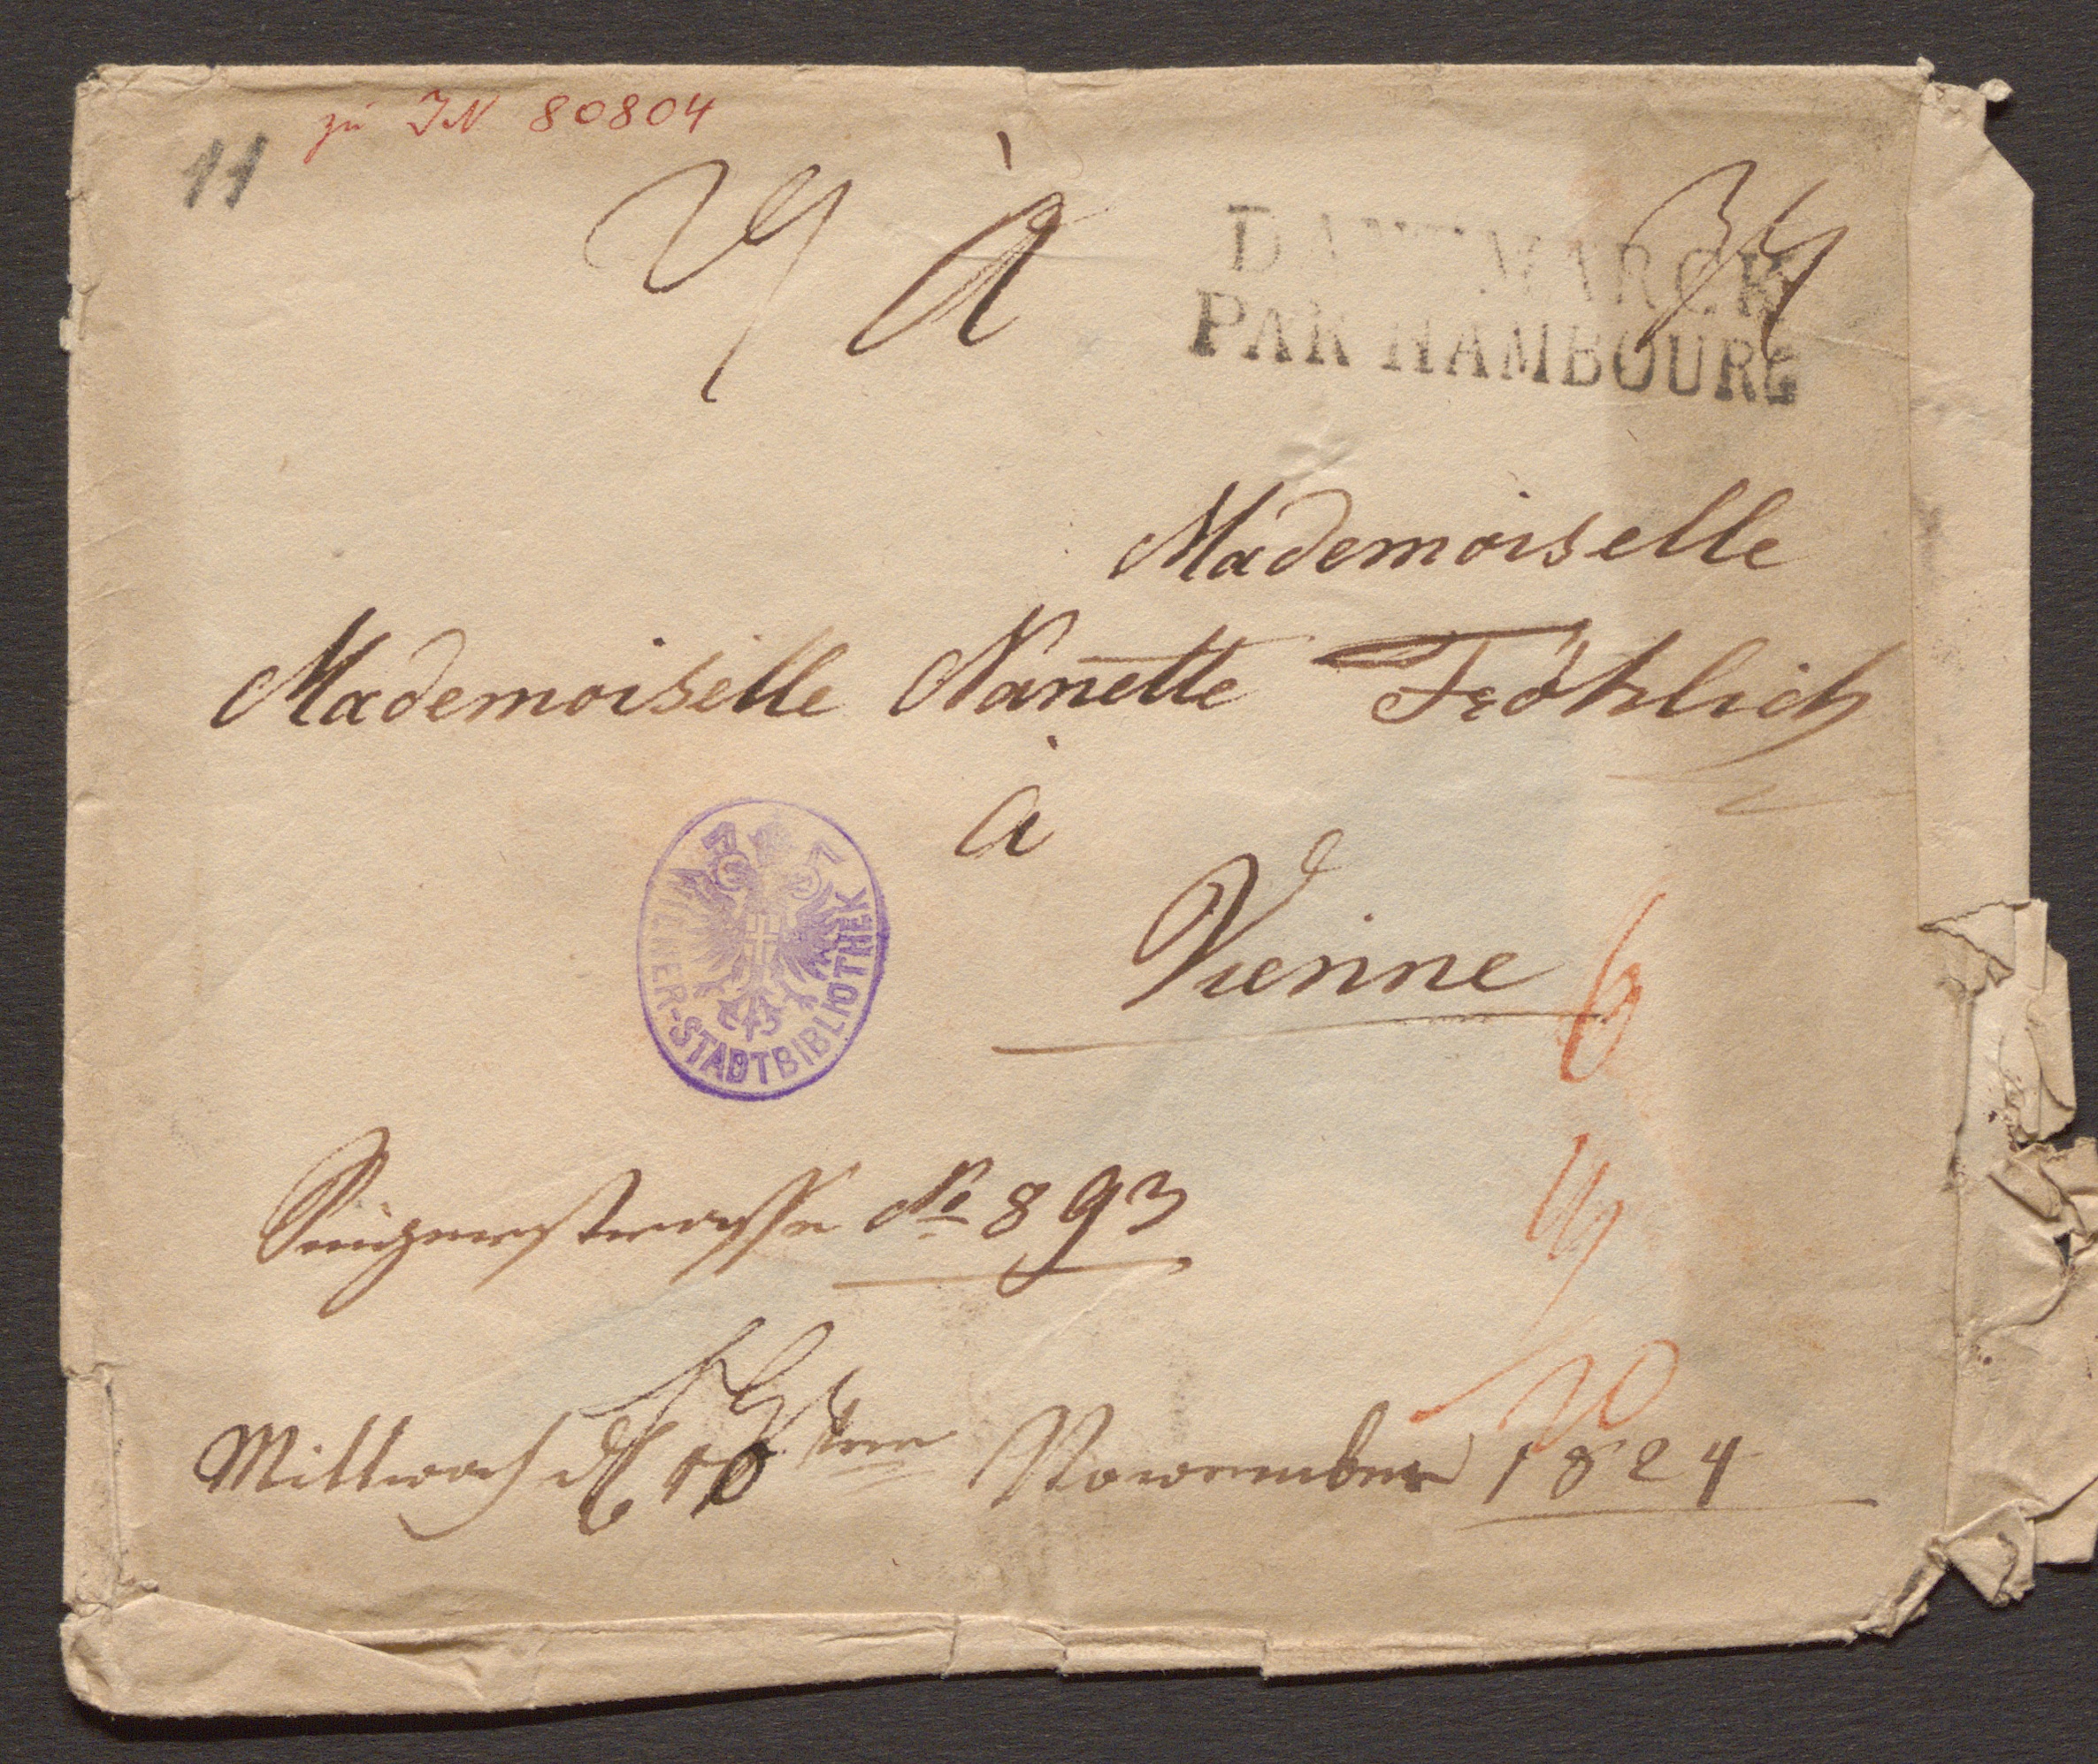 zu IN 80804
11
à
DANEMARCK
PAR HAMBOURG
Mademoiselle
Mademoiselle Nanette Fröhlich
à
Vienne
WIENER-STADTBIBLIOTHEK
6
Singerstrasse No 893
Mittwoch d 10 ten November 1824